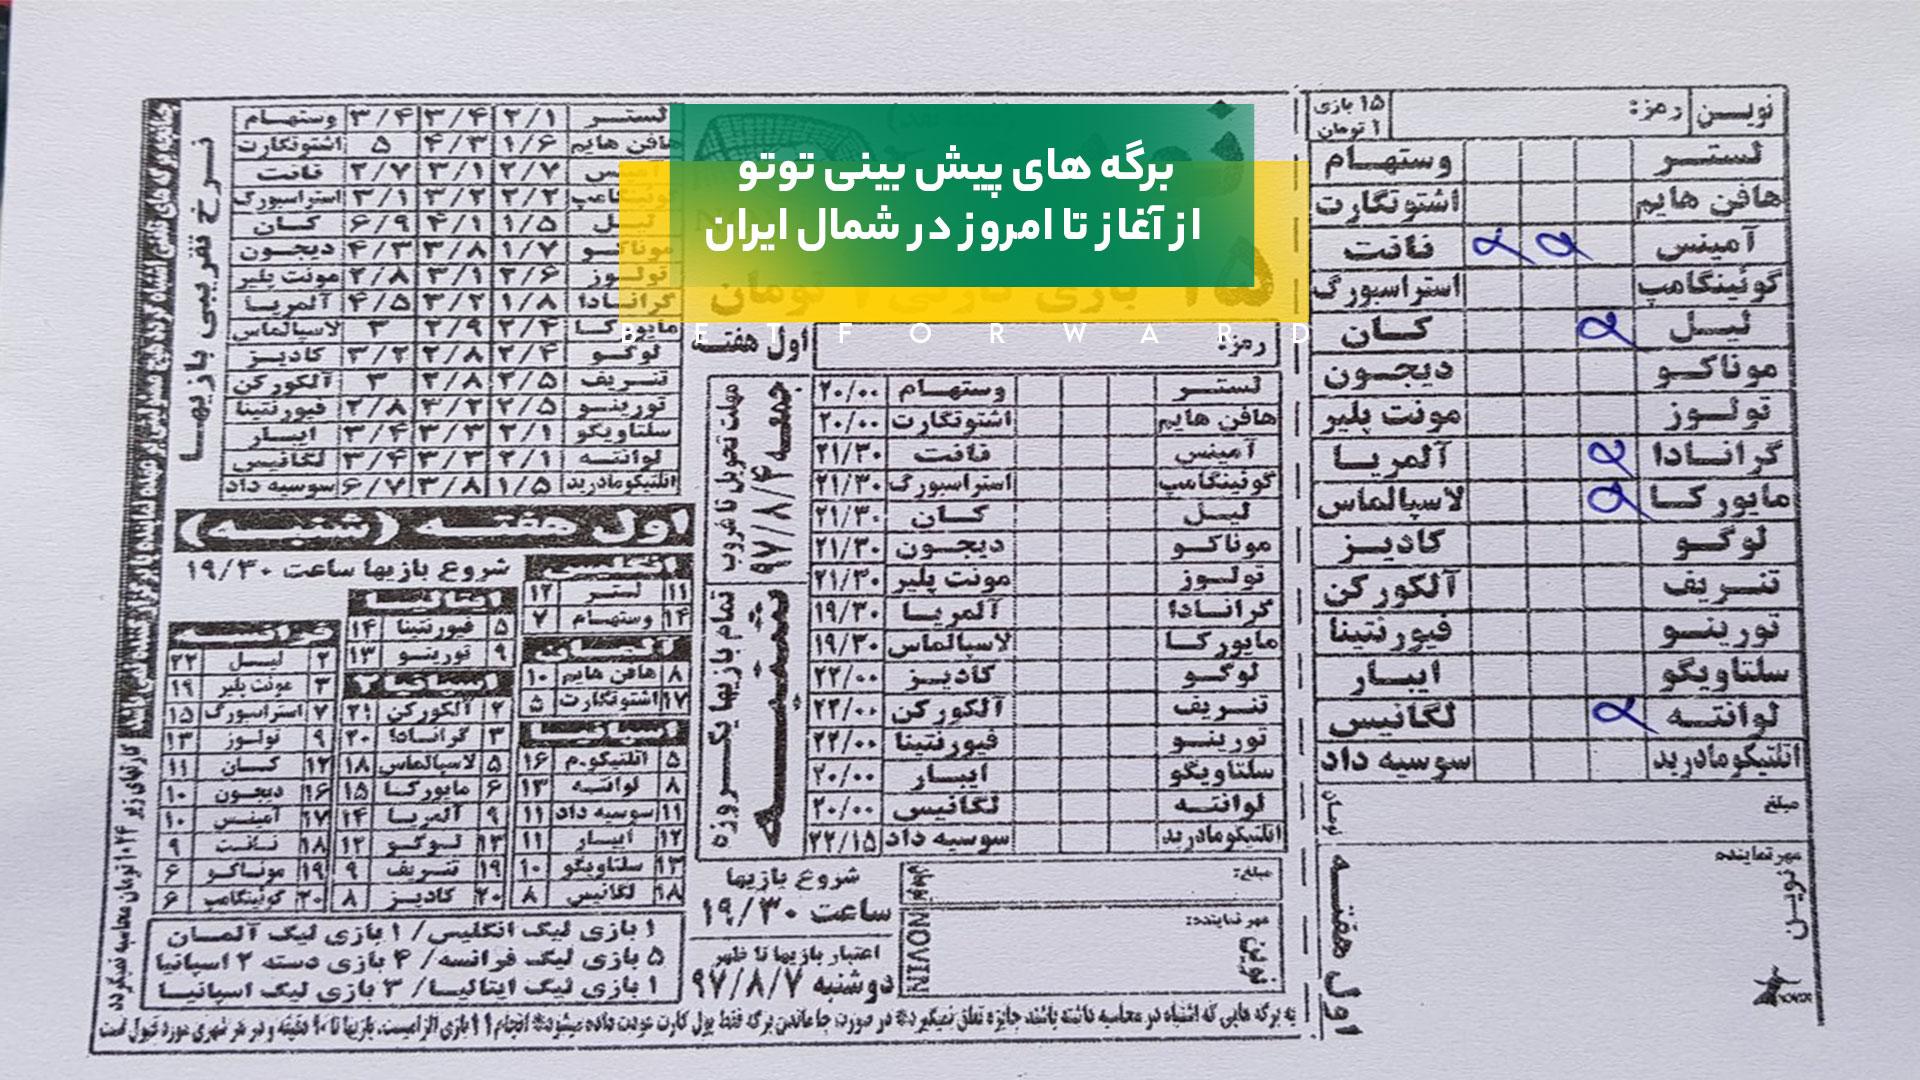 برگه های پیش بینی توتو
از آغاز تا امروز در شمال ایران
BETFORWARD
نوین رمز: ۱۵ بازی ۱ تومان
لستر وستهام
هافن هایم اشتوتگارت
آمینس نانت
گوئینگامپ استراسبورگ
لیل کان
موناکو دیجون
تولوز مونت پلیر
گرانادا آلمریا
مایورکا لاسپالماس
لوگو کادیز
تنریف آلکورکن
تورینو فیورنتینا
سلتاویگو ایبار
لوانته لگانیس
اتلتیکومادرید سوسیه داد
مبلغ تومان
مهر نماینده
نوین
اول هفته
۱۵ بازی کارتی ۱ تومان
رمز: اول هفته
لستر وستهام ۲۰/۰۰
هافن هایم اشتوتگارت ۲۰/۰۰
آمینس نانت ۲۱/۳۰
گوئینگامپ استراسبورگ ۲۱/۳۰
لیل کان ۲۱/۳۰
موناکو دیجون ۲۱/۳۰
تولوز مونت پلیر ۲۱/۳۰
گرانادا آلمریا ۱۹/۳۰
مایورکا لاسپالماس ۱۹/۳۰
لوگو کادیز ۲۲/۰۰
تنریف آلکورکن ۲۲/۰۰
تورینو فیورنتینا ۲۲/۰۰
سلتاویگو ایبار ۲۰/۰۰
لوانته لگانیس ۲۰/۰۰
اتلتیکومادرید سوسیه داد ۲۲/۱۵
مبلغ: تومان
مهر نماینده:
نوین
NOVIN
مهلت تحویل تا غروب
جمعه ۹۷/۸/۴
تمام بازیها یکروزه
شنبه
شروع بازیها
ساعت ۱۹/۳۰
اعتبار بازیها تا ظهر
دوشنبه ۹۷/۸/۷
نرخ تقریبی بازیها
لستر ۲/۱ ۳/۴ ۳/۴ وستهام
هافن هایم ۱/۶ ۴/۳ ۵ اشتوتگارت
آمینس ۲/۷ ۳/۱ ۲/۷ نانت
گوئینگامپ ۲/۲ ۳/۲ ۳/۱ استراسبورگ
لیل ۱/۵ ۴/۱ ۶/۹ کان
موناکو ۱/۷ ۳/۸ ۴/۳ دیجون
تولوز ۲/۶ ۳/۱ ۲/۸ مونت پلیر
گرانادا ۱/۸ ۳/۲ ۴/۵ آلمریا
مایورکا ۲/۴ ۲/۹ ۳ لاسپالماس
لوگو ۲/۴ ۲/۸ ۳/۲ کادیز
تنریف ۲/۵ ۲/۸ ۳ آلکورکن
تورینو ۲/۵ ۳/۲ ۲/۸ فیورنتینا
سلتاویگو ۲/۱ ۳/۳ ۳/۴ ایبار
لوانته ۲/۱ ۳/۳ ۳/۴ لگانیس
اتلتیکومادرید ۱/۵ ۳/۸ ۶/۷ سوسیه داد
اول هفته (شنبه)
شروع بازیها ساعت ۱۹/۳۰
انگلیس
۱۱ لستر ۱۲
۱۴ وستهام ۷
آلمان
۸ هافن هایم ۱۰
۱۷ اشتوتگارت ۵
اسپانیا
۵ اتلتیکو.م ۱۶
۸ لوانته ۱۳
۱۱ سوسیه داد ۱۱
۱۲ ایبار ۱۱
۱۳ سلتاویگو ۱۰
۱۸ لگانیس ۸
ایتالیا
۵ فیورنتینا ۱۴
۹ تورینو ۱۳
اسپانیا ۲
۲ آلکورکن ۲۱
۳ گرانادا ۲۰
۵ لاسپالماس ۱۸
۶ مایورکا ۱۵
۹ آلمریا ۱۴
۱۳ لوگو ۱۲
۱۹ تنریف ۹
۲۰ کادیز ۸
فرانسه
۲ لیل ۲۲
۳ مونت پلیر ۱۹
۷ استراسبورگ ۱۵
۹ تولوز ۱۳
۱۲ کان ۱۱
۱۶ دیجون ۱۰
۱۷ آمینس ۱۰
۱۸ نانت ۹
۱۹ موناکو ۶
۲۰ گوئینگامپ ۶
۱ بازی لیگ انگلیس/ ۱ بازی لیگ آلمان
۵ بازی لیگ فرانسه/ ۴ بازی دسته ۲ اسپانیا
۱ بازی لیگ ایتالیا/ ۳ بازی لیگ اسپانیا
به برگه هایی که اشتباه در محاسبه داشته باشند جایزه تعلق نمیگیرد* در صورت جا ماندن برگه فقط پول کارت عودت داده میشود* انجام ۱۱ بازی الزامیست. بازیها تا ۹۰ دقیقه و در هر شهری مورد قبول است
کارتهای زیر ۱۰۲۴ تومان محاسبه نمیگردد